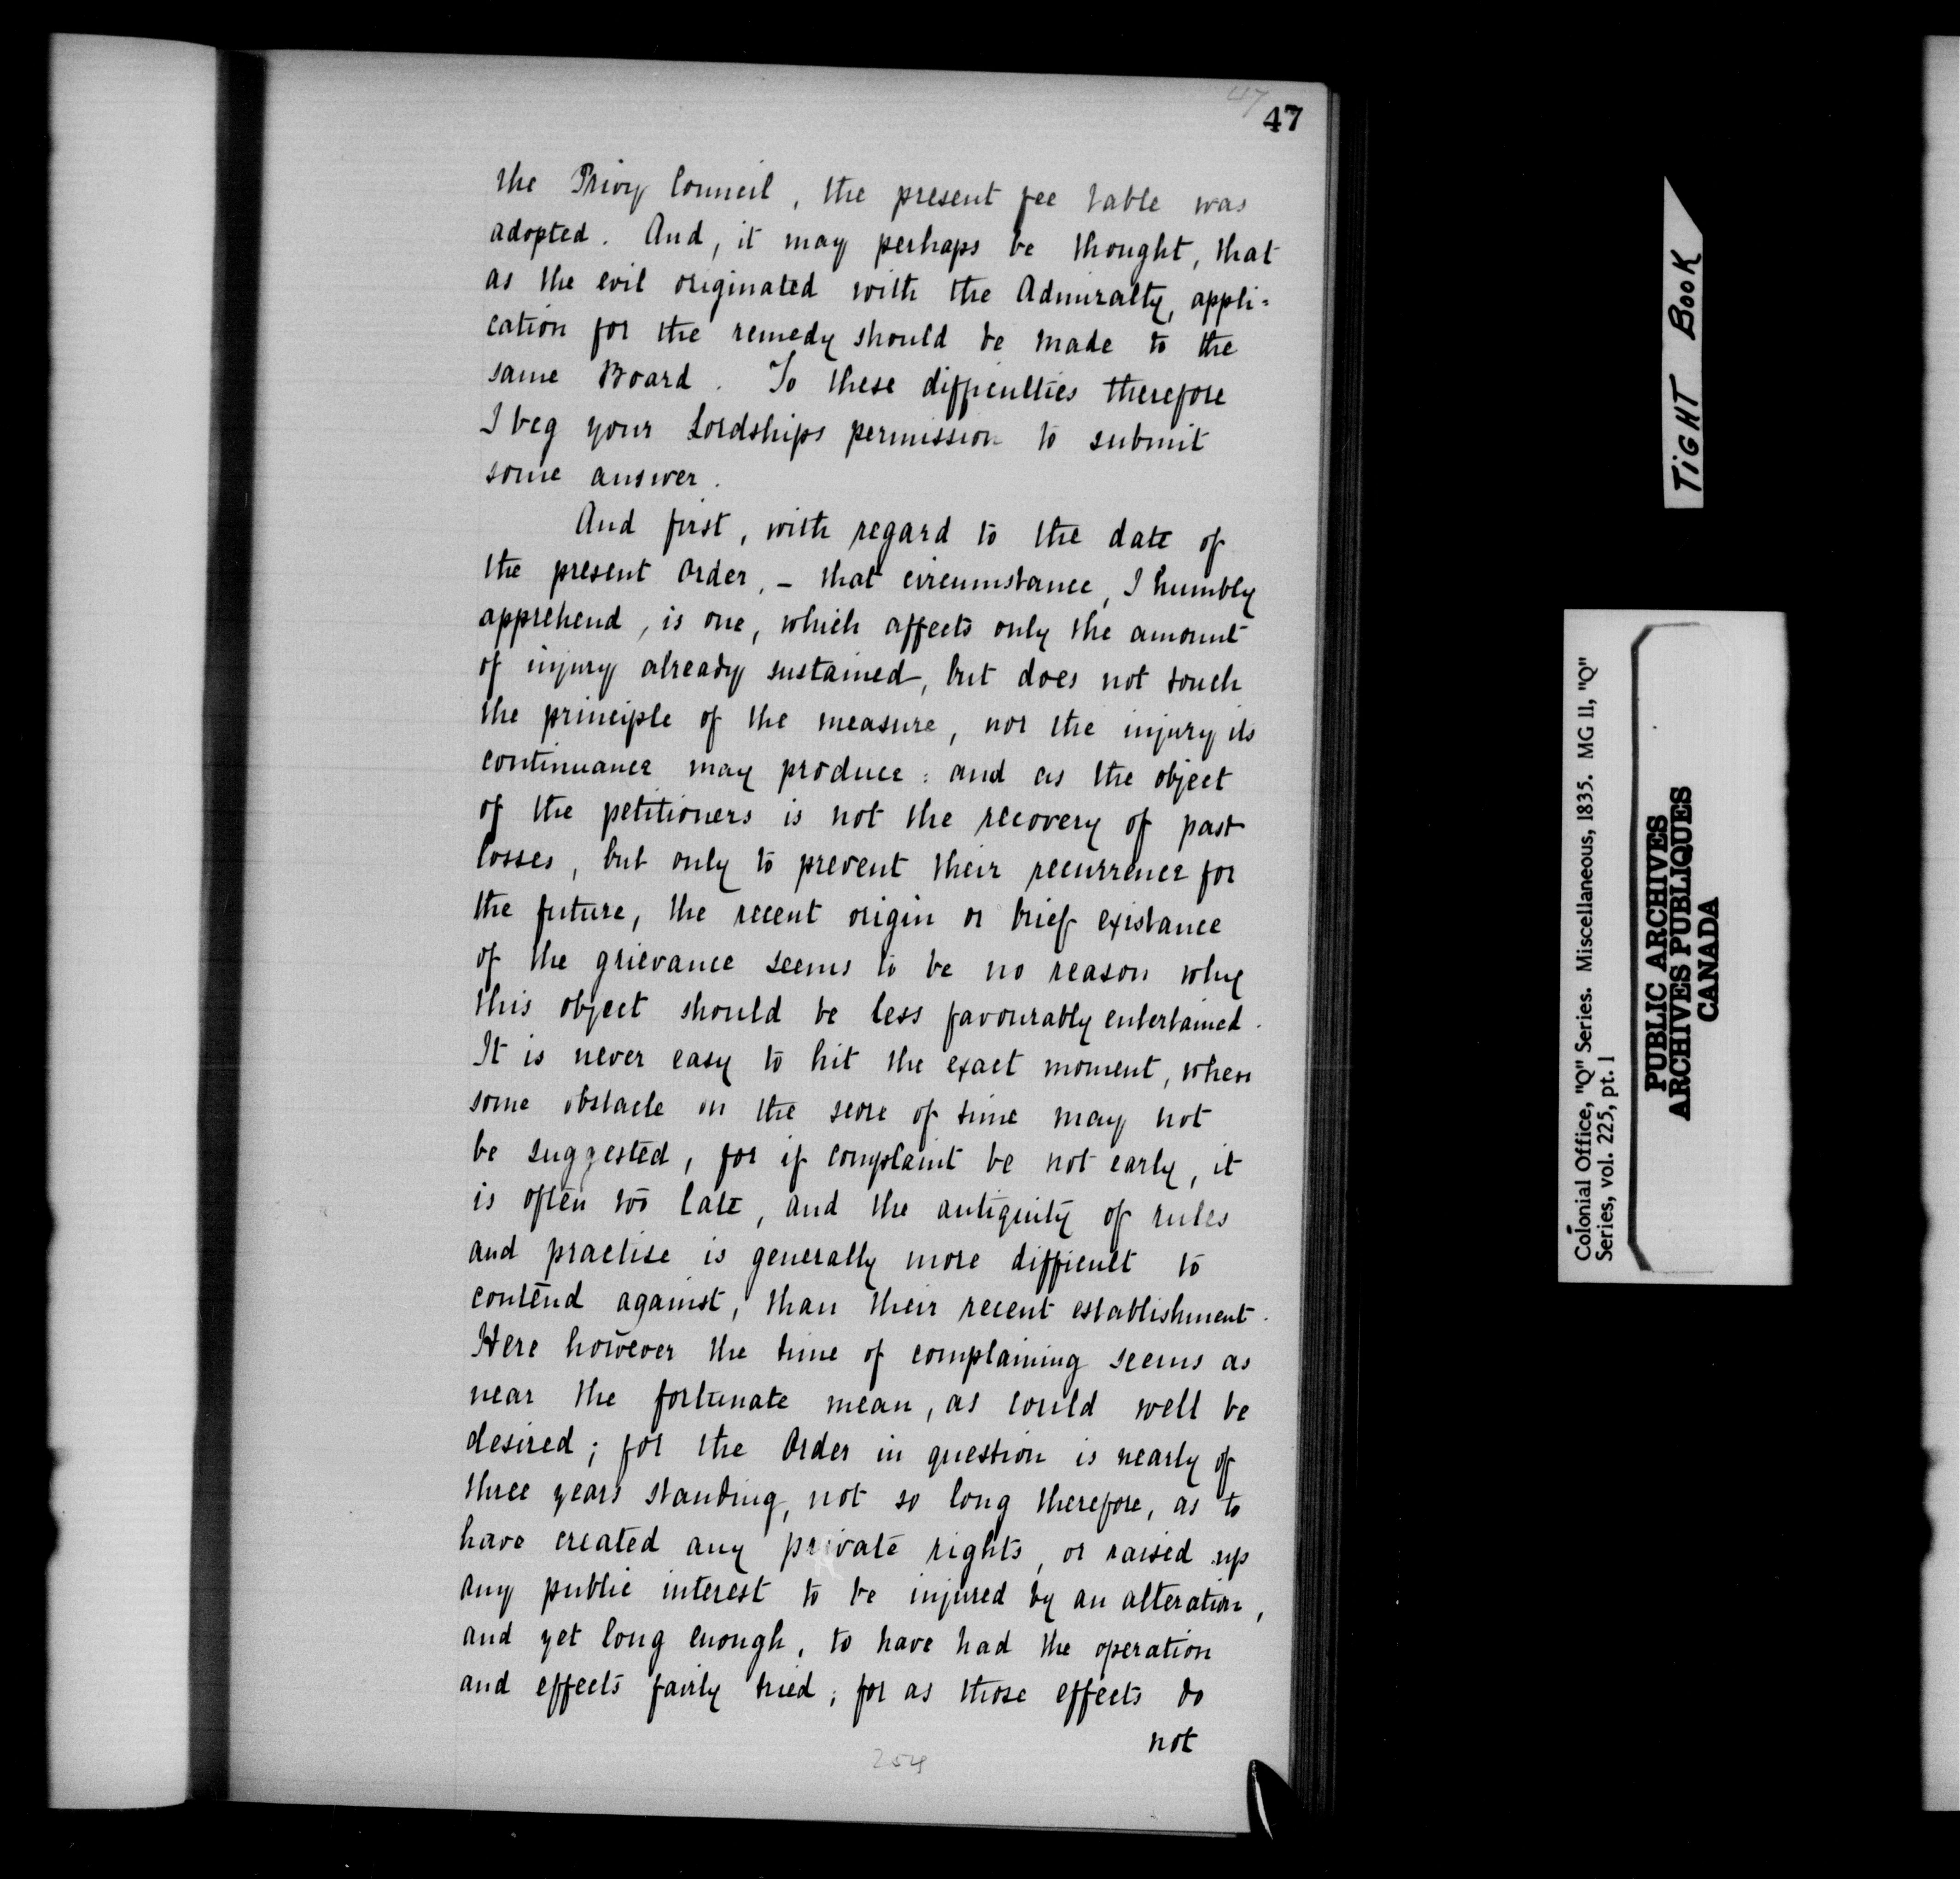 47
47
the Privy Council, the present fee table was
adopted. And, it may perhaps be thought, that
as the evil originated with the Admiralty, appli=
cation for the remedy should be made to the
same Board. To these difficulties therefore
I beg your Lordships permission to submit
some answer.
And first, with regard to the date of
the present Order, - that circumstance, I humbly
apprehend, is one, which affects only the amount
of injury already sustained, but does not touch
the principle of the measure, nor the injury its
continuance may produce: and as the object
of the petitioners is not the recovery of past
losses, but only to prevent their recurrence for
the future, the recent origin or brief existance
of the grievance seems to be no reason why
this object should be less favourably entertained.
It is never easy to hit the exact moment, when
some obstacle on the score of time may not
be suggested, for if complaint be not early, it
is often too late, and the antiquity of rules
and practise is generally more difficult to
contend against, than their recent establishment.
Here however the time of complaining seems as
near the fortunate mean, as could well be
desired; for the Order in question is nearly of
three years standing, not so long therefore, as to
have created any private rights, or raised up
any public interest to be injured by an alteration,
and yet long enough, to have had the operation
and effects fairly tried; for as those effects do
not
254
TIGHT BOOK
Colonial Office, "Q" Series. Miscellaneous, 1835. MG 11, "Q"
Series, vol. 225, pt. 1
PUBLIC ARCHIVES
ARCHIVES PUBLIQUES
CANADA